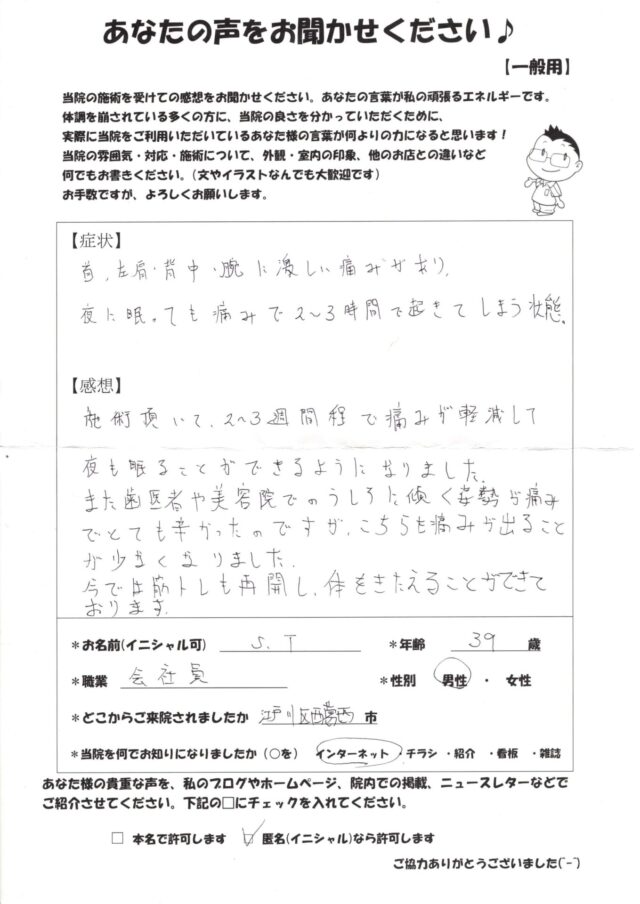 あなたの声をお聞かせください♪
【一般用】
当院の施術を受けての感想をお聞かせください。あなたの言葉が私の頑張るエネルギーです。
体調を崩されている多くの方に、当院の良さを分かっていただくために、
実際に当院をご利用いただいているあなた様の言葉が何よりの力になると思います！
当院の雰囲気・対応・施術について、外観・室内の印象、他のお店との違いなど
何でもお書きください。(文やイラストなんでも大歓迎です)
お手数ですが、よろしくお願いします。
【症状】
首、左肩・背中・腕に激しい痛みがあり、
夜に眠っても痛みで2〜3時間で起きてしまう状態。
【感想】
施術頂いて、2〜3週間程で痛みが軽減して
夜も眠ることができるようになりました。
また歯医者や美容院でのうしろに傾く姿勢が痛み
でとても辛かったのですが、こちらも痛みが出ること
が少なくなりました。
今では筋トレも再開し、体をきたえることができて
おります。
＊お名前(イニシャル可) S.T ＊年齢 39 歳
＊職業 会社員 ＊性別 男性 ・ 女性
＊どこからご来院されましたか 江戸川区西葛西 市
＊当院を何でお知りになりましたか (○を) インターネット ・チラシ ・紹介 ・看板 ・雑誌
あなた様の貴重な声を、私のブログやホームページ、院内での掲載、ニュースレターなどで
ご紹介させてください。下記の□にチェックを入れてください。
□ 本名で許可します ☑ 匿名(イニシャル)なら許可します
ご協力ありがとうございました(^-^)